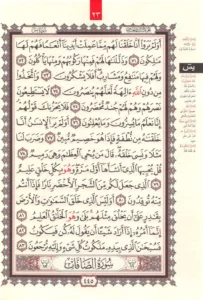 ٢٣
أَوَلَمْ يَرَوْا أَنَّا خَلَقْنَا لَهُم مِّمَّا عَمِلَتْ أَيْدِينَا أَنْعَامًا فَهُمْ لَهَا
مَالِكُونَ ٧١ وَذَلَّلْنَاهَا لَهُمْ فَمِنْهَا رَكُوبُهُمْ وَمِنْهَا يَأْكُلُونَ ٧٢
وَلَهُمْ فِيهَا مَنَافِعُ وَمَشَارِبُ أَفَلَا يَشْكُرُونَ ٧٣ وَاتَّخَذُوا
مِن دُونِ اللَّهِ آلِهَةً لَّعَلَّهُمْ يُنصَرُونَ ٧٤ لَا يَسْتَطِيعُونَ
نَصْرَهُمْ وَهُمْ لَهُمْ جُندٌ مُّحْضَرُونَ ٧٥ فَلَا يَحْزُنكَ قَوْلُهُمْ
إِنَّا نَعْلَمُ مَا يُسِرُّونَ وَمَا يُعْلِنُونَ ٧٦ أَوَلَمْ يَرَ الْإِنسَانُ أَنَّا
خَلَقْنَاهُ مِن نُّطْفَةٍ فَإِذَا هُوَ خَصِيمٌ مُّبِينٌ ٧٧ وَضَرَبَ لَنَا
مَثَلًا وَنَسِيَ خَلْقَهُ قَالَ مَن يُحْيِي الْعِظَامَ وَهِيَ رَمِيمٌ ٧٨
قُلْ يُحْيِيهَا الَّذِي أَنشَأَهَا أَوَّلَ مَرَّةٍ وَهُوَ بِكُلِّ خَلْقٍ عَلِيمٌ
٧٩ الَّذِي جَعَلَ لَكُم مِّنَ الشَّجَرِ الْأَخْضَرِ نَارًا فَإِذَا أَنتُم
مِّنْهُ تُوقِدُونَ ٨٠ أَوَلَيْسَ الَّذِي خَلَقَ السَّمَاوَاتِ وَالْأَرْضَ
بِقَادِرٍ عَلَى أَن يَخْلُقَ مِثْلَهُم بَلَى وَهُوَ الْخَلَّاقُ الْعَلِيمُ ٨١
إِنَّمَا أَمْرُهُ إِذَا أَرَادَ شَيْئًا أَن يَقُولَ لَهُ كُن فَيَكُونُ ٨٢
فَسُبْحَانَ الَّذِي بِيَدِهِ مَلَكُوتُ كُلِّ شَيْءٍ وَإِلَيْهِ تُرْجَعُونَ ٨٣
سُورَةُ الصَّافَّاتِ
٤٤٥
يس